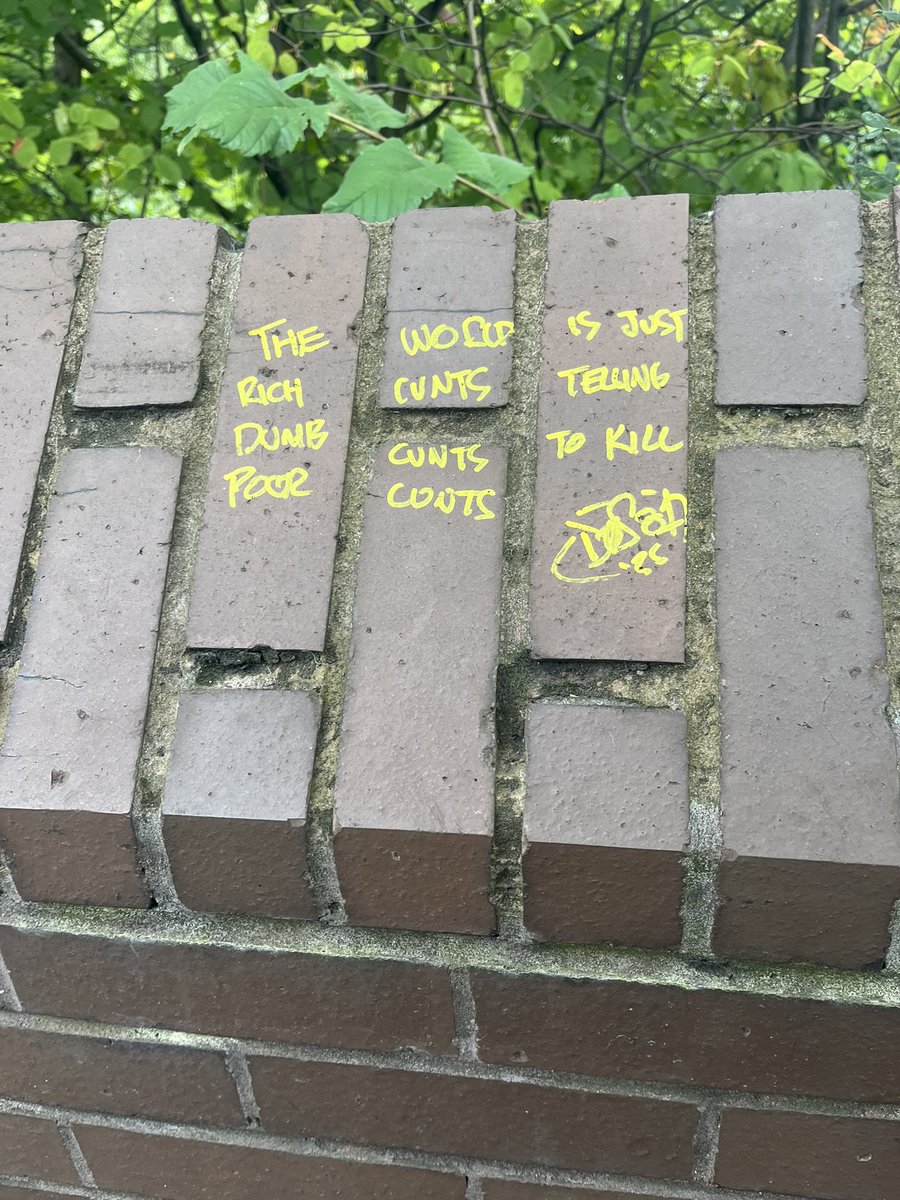 THE WORLD IS JUST
RICH CUNTS TELLING
DUMB CUNTS TO KILL
POOR CUNTS
-25